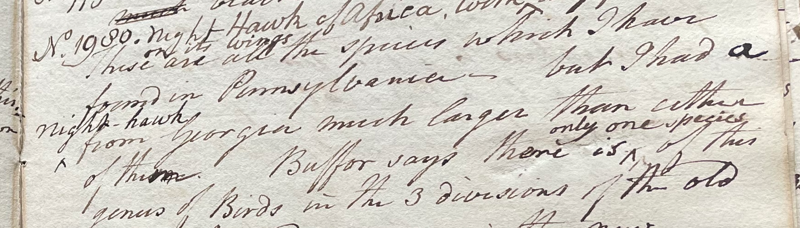 No. 1980. Night Hawk of Africa, with
on its wings
These are all the species which I have
found in Pennsylvania — but I had a
night-hawk
^ from Georgia much larger than either
only one species
of them. Buffon says there is ^ of this
genus of Birds in the 3 divisions of the old